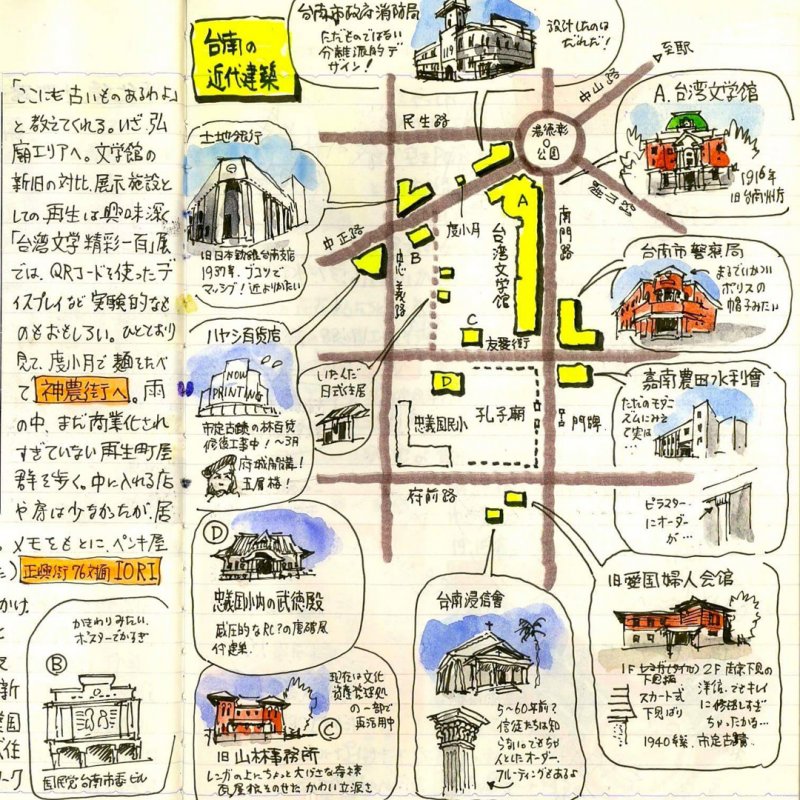 台南の
近代建築
台南市政府消防局
ただものではない
分離派的デ
ザイン！
設計したのは
だれだ！
「ここにも古いものあるわよ」
と教えてくれる。いざ、孔
廟エリアへ。文学館の
新旧の対比、展示施設と
しての再生は興味深く
「台湾文学精彩一百」展
では、QRコードを使ったデ
ィスプレイなど実験的なも
のもおもしろい。ひととおり
見て、度小月で麺をたべ
て神農街へ。雨
の中、まだ商業化され
すぎていない再生町屋
群を歩く。中に入れる店
や房は少なかったが、居
メモをもとに、ペンキ屋
正興街76対面 IORI
土地銀行
旧日本勧銀台南支店
1937年、ブコツで
マッシブ！近よりがたい
ハヤシ百貨店
NOW
PRINTING
市定古蹟の林百貨
修復工事中！～3月
府城開講！
五層楼！
いたんだ
日式住居
民生路
中正路
中山路
至駅
湯徳彰
公園
南門路
忠義路
友愛街
府前路
度小月
台湾文学館
A
B
C
D
忠義国民小
孔子廟
門牌
A. 台湾文学館
1916年
旧台南州庁
台南市警察局
まるでいかつい
ポリスの
帽子みたい
嘉南農田水利會
ただのモダニ
ズムにみえ
て実は…
ピラスター
にオーダー
が…
旧愛国婦人会館
1F
下見板
スカート式
下見ばり
2F 南京下見の
洋信。でもキレイ
に修復しすぎ
ちゃったかな…
1940年、市定古蹟
台南浸信會
5～60年前？
信徒たちは知
らないの。でもちゃ
んとしたオーダー。
フルーティングもあるよ
D
忠義国小内の武徳殿
威圧的なRC？の唐破風
付建築。
現在は文化
資産管理処
の一部で
再活用中
C
旧山林事務所
レンガの上にちょっと大げさな寄棟
瓦屋根をのせた かわいい立派さ
B
かまわりみたい。
ポスターでかるぎ
国民党台南市委ビル